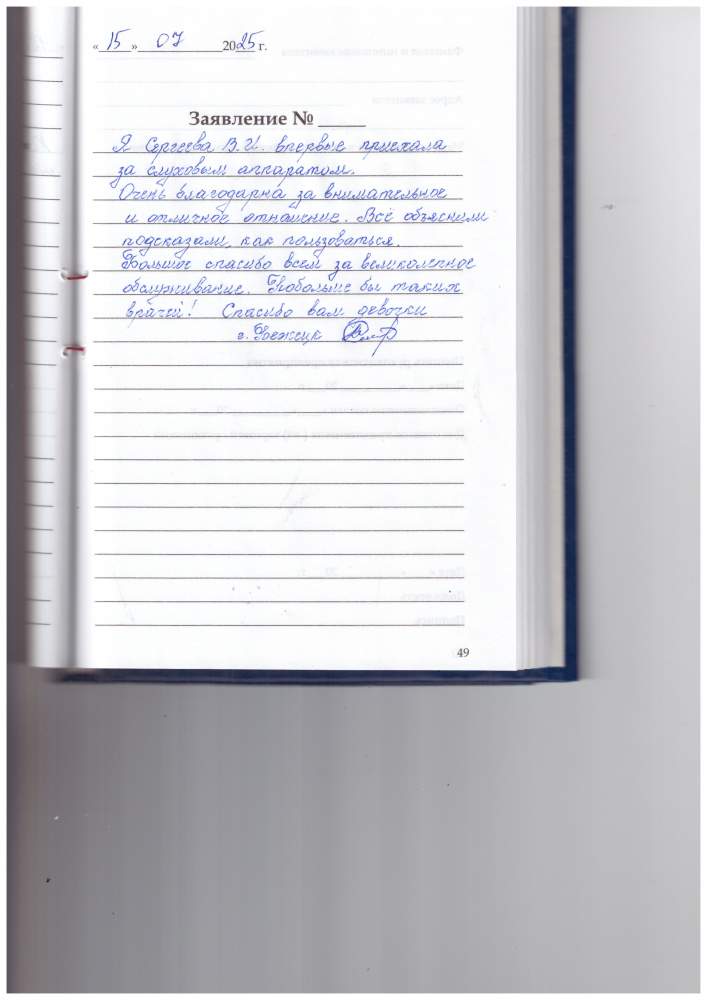 «15» 07 2025 г.
Заявление №
Я Сергеева В.И. впервые приехала
за слуховым аппаратом.
Очень благодарна за внимательное
и отличное отношение. Всё объяснили
подсказали, как пользоваться.
Большое спасибо всем за великолепное
обслуживание. Побольше бы таких
врачей! Спасибо вам девочки
г. Бежецк
49